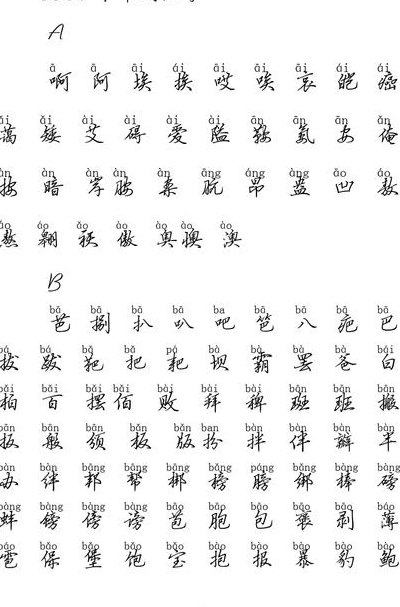 A
ā ā āi ái āi āi āi ái ái
啊 阿 埃 挨 哎 唉 哀 皑 癌
ǎi ǎi ài ài ài ài ān ān ān ǎn
蔼 矮 艾 碍 爱 隘 鞍 氨 安 俺
àn àn àn àn àn āng áng àng āo áo
按 暗 岸 胺 案 肮 昂 盎 凹 敖
áo áo ǎo ào ào ào ào
熬 翱 袄 傲 奥 懊 澳
B
bā bā bā bā ba bā bā bā bā
芭 捌 扒 叭 吧 笆 八 疤 巴
bá bá bǎ bǎ pá bà bà bà bà bái
拔 跋 靶 把 耙 坝 霸 罢 爸 白
bǎi bǎi bǎi bǎi bài bài bài bān bān bān
柏 百 摆 佰 败 拜 稗 斑 班 搬
bān bān bān bǎn bǎn bàn bàn bàn bàn bàn
扳 般 颁 板 版 扮 拌 伴 瓣 半
bàn bàn bāng bāng bāng bǎng páng bǎng bàng bàng
办 绊 邦 帮 梆 榜 膀 绑 棒 磅
bàng bàng bàng bàng bāo bāo bāo bāo bāo báo
蚌 镑 傍 谤 苞 胞 包 褒 剥 薄
báo bǎo bǎo bǎo bǎo bào bào bào bào bào
雹 保 堡 饱 宝 抱 报 暴 豹 鲍